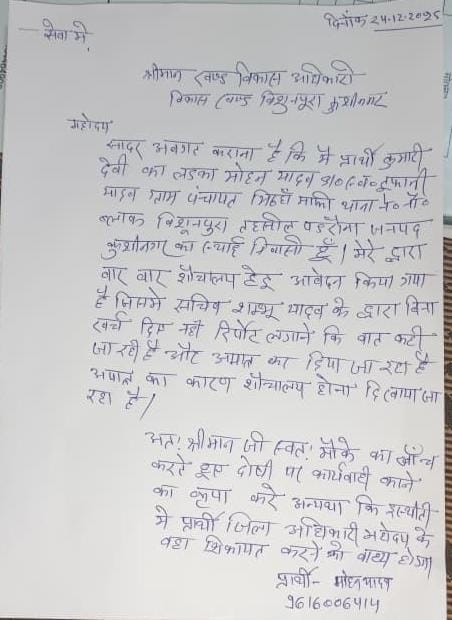 दिनाँक 24-12-2025
सेवा मे,
श्रीमान खण्ड विकास अधिकारी
विकास खण्ड विशुनपुरा कुशीनगर
महोदय
सादर अवगत कराना है कि मै प्रार्थी कुमारी
देवी का लडका मोहन यादव S/o स्व० तुफानी
यादव ग्राम पंचायत माफी थाना ने० नौ०
ब्लाक विशुनपुरा तहसील पडरौना जनपद
कुशीनगर का स्थाई निवासी हूँ। मेरे द्वारा
बार बार शौचालय हेतु आवेदन किया गया
है जिसमे सचिव शम्भू यादव के द्वारा बिना
खर्च दिए नही रिपोर्ट लगाने कि बात कही
जा रही है और अपात्र कर दिया जा रहा है
अपात्र का कारण शौचालय होना दिखाया जा
रहा है।
अतः श्रीमान जी स्वतः मौके का जाँच
करते हुए दोषी पर कार्यवाही करने
का कृपा करे अन्यथा कि स्थीती
मे प्रार्थी जिला अधिकारी महोदय के
वहा शिकायत करने को बाध्य होगा
प्रार्थी- मोहन यादव
9616006414